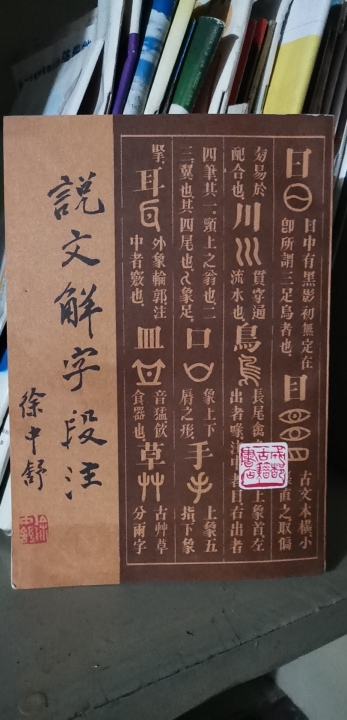 說文解字段注
徐中舒
日 日中有黑影初無定在
即所謂三足烏者也
目 古文本橫小
直之取偏
旁易於
配合也
川 貫穿通
流水也
鳥 長尾禽 上象首左
出者喙注中者目右出者
四筆其一頸上之翁也二
三翼也其四尾也匕象足
口 象上下
唇之形
手 上象五
指下象
掔
耳 外象輪郭注
中者竅也
皿 音猛飲
食器也
草 古艸草
分兩字
成都
古籍
書店